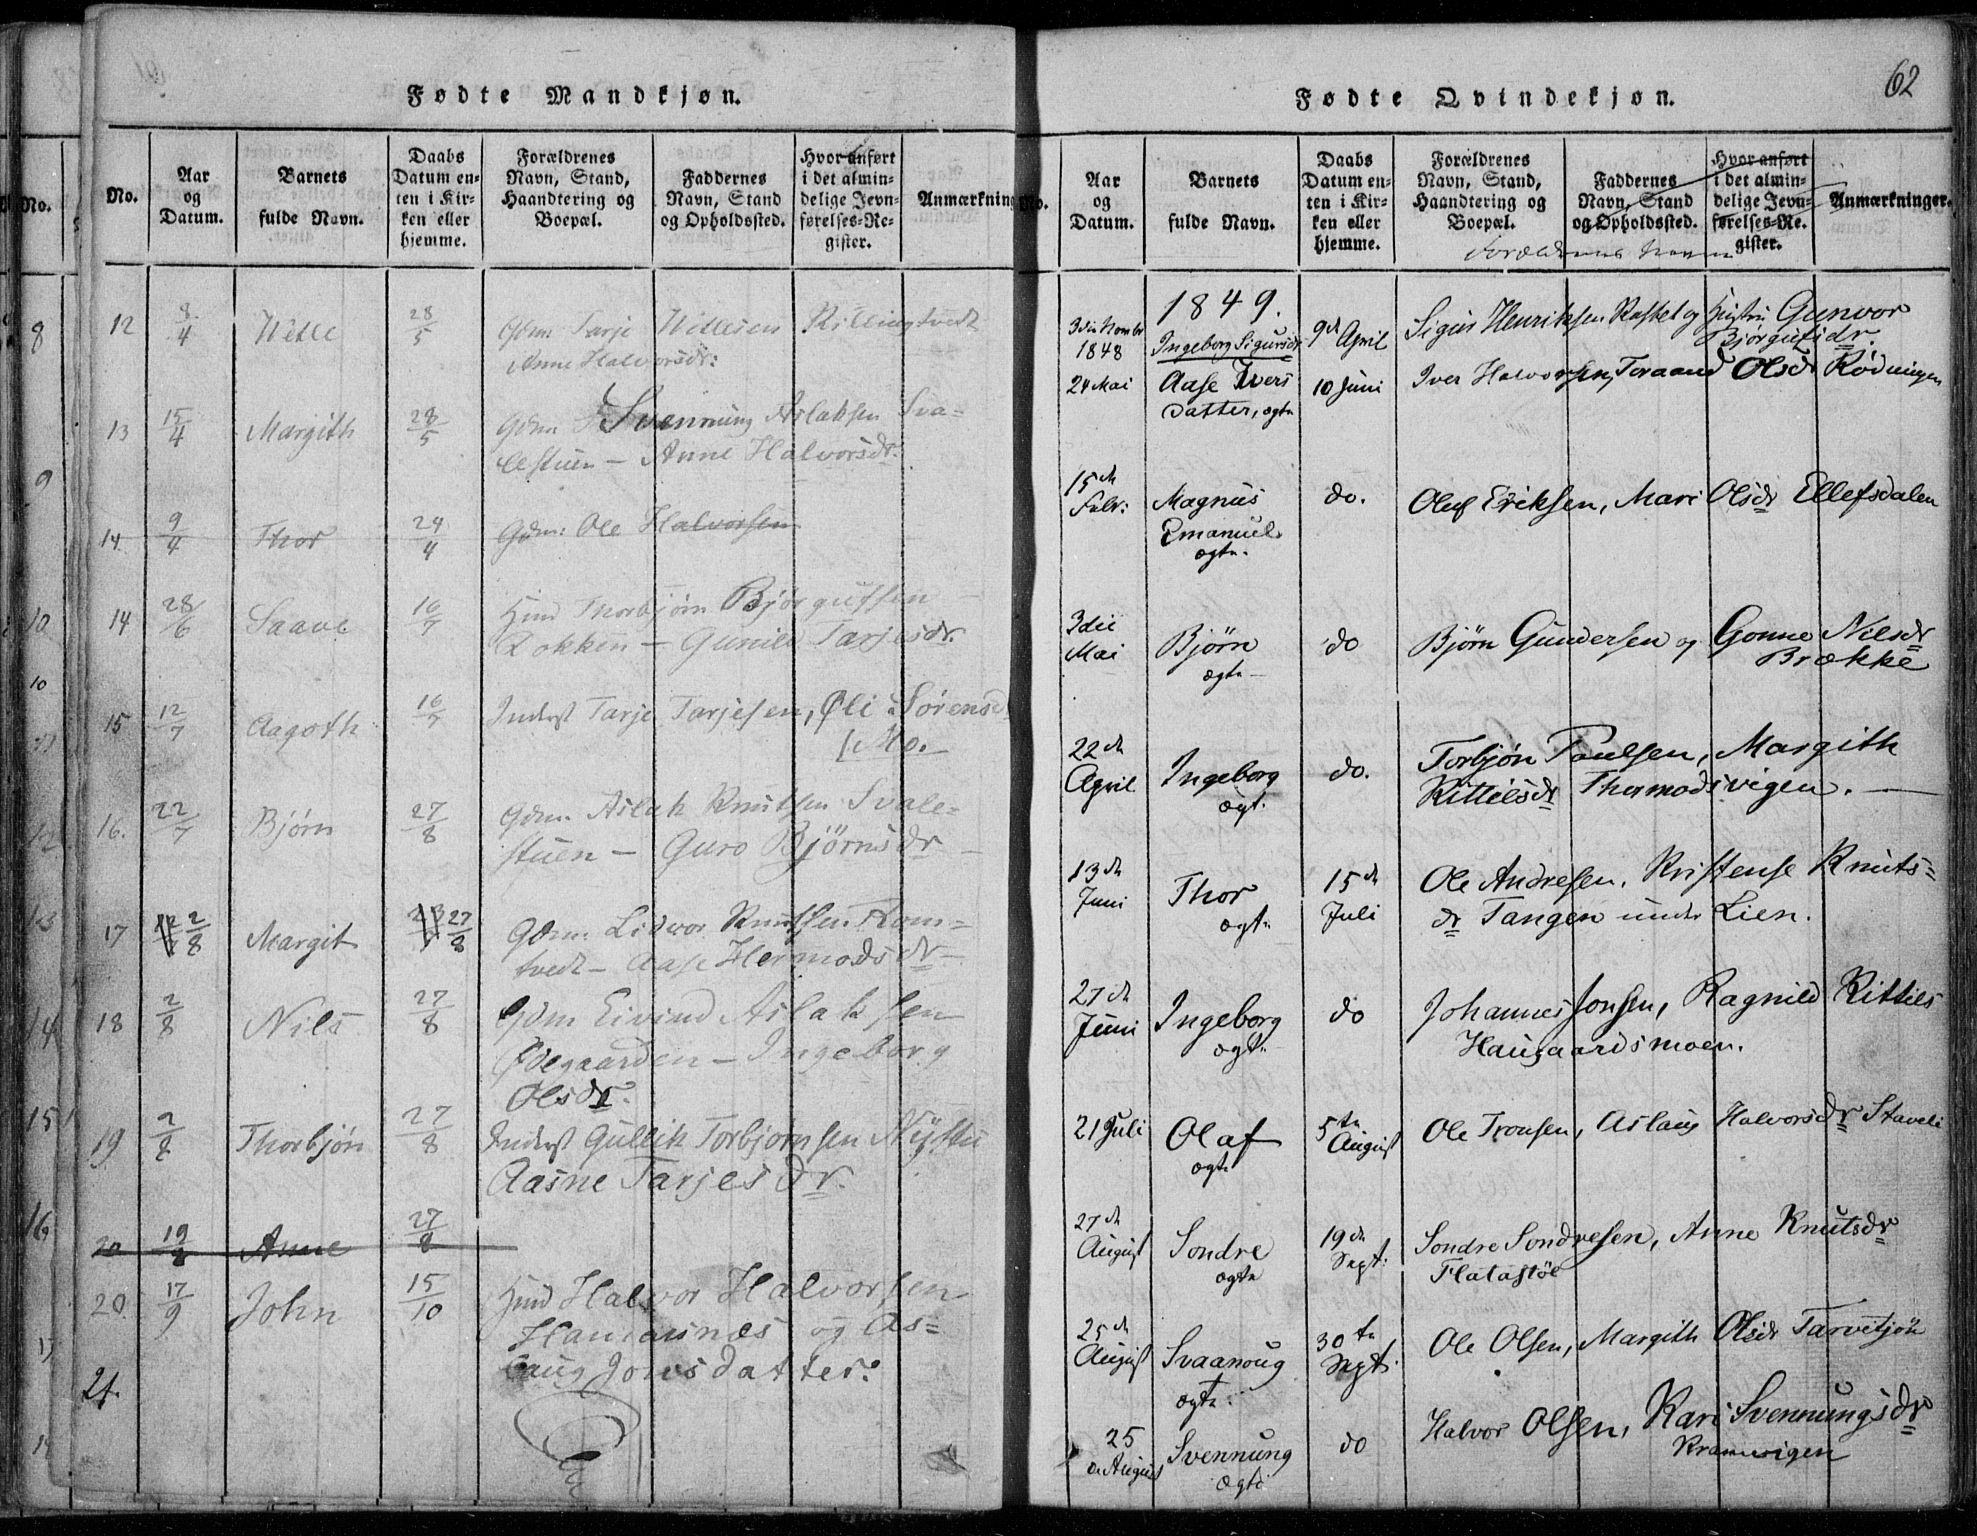 Fødte Mandkjøn.
No.
Aar
og
Datum.
Barnets
fulde Navn.
Daabs
Datum en-
ten i Kir-
ken eller
hjemme.
Forældrenes
Navn, Stand,
Haandtering og
Boepæl.
Faddernes
Navn, Stand
og Opholdssted.
Hvor anført
i det almin-
delige Jevn-
førelses-Re-
gister.
Anmærkning
12 8/4 28/5 Gdm: Tarje
Anne Halvorsdr:
13 15/4 Margith 28/5 Gdm Svennung Aslaksen Sva=
lestuen — Anne Halvorsdr.
14 9/4 Thor 24/4 Gdm: Ole Halvorsen
14 28/6 Saave 16/7 Thorbjørn Bjørgufsen
Gunild Tarjesdr.
15 12/7 Aagoth 16/7 Inderst Tarje Tarjesen, Øli Sørens
Mo.
16. 22/7 Bjørn 27/8 Gdm. Aslak Knutsen Svale=
stuen — Guro Bjørnsdr —
17 2/8 Margit 27/8 Gdm: Lidvor Knutsen
tvedt — Aase Hermodsdr —
18 2/8 Nils 27/8 Gdm Eivind Aslaksen
Ødegaarden — Ingeborg
Olsdr.
19 2/8 Thorbjørn 27/8 Inderst Gullik Torbjørnsen
Aasne Tarjesdr.
20 19/8 Anne 27/8
20 17/9 John 15/10 Halvor Halvorsen
og As=
laug Jonsdatter.
21.
62
Fødte Qvindekjøn.
No.
Aar
og
Datum.
Barnets
fulde Navn.
Daabs
Datum en-
ten i Kir-
ken eller
hjemme.
Forældrenes
Navn, Stand,
Haandtering og
Boepæl.
Faddernes
Navn, Stand
og Opholdssted.
Hvor anført
i det almin-
delige Jevn-
førelses-Re-
gister.
Anmærkninger.
Forældrenes Navn
1849.
3die Novbr 1848 Ingeborg Sigursdr 9d April Sigur Henriksen og Hustru Gunvor
Bjørgufsdr.
24 Mai Aase Ivers 10 Juni Iver Halvorsen, Toraand Olsdr Rødningen
datter, ægte
15de
Febr: Magnus do. Oluf Eriksen, Mari Olsdr Ellefsdalen
Emanuel
ægte.
3die
Mai Bjørn do Bjørn Gundersen og Gonne Nilsdr
ægte — Brække
22de
April Ingeborg do. Torbjøn Paulsen, Margith
ægt. Kittilsdr Thormodsvigen. —
13de
Juni Thor 15de Juli Ole Andresen, Kristense Knuts=
ægte dr Tangen under Lien.
27de
Juni Ingeborg do Johannes Jonsen, Ragnild Kittils
ægte Haugaardsmoen.
21 Juli Olaf 5te August Ole Tronsen, Aslaug Halvorsdr Staveli
ægte
27de
August Sondre 19de Sept: Sondre Sondresen, Anne Knutsdr
ægte Flatastöl
25de
August Svaanoug 30te Sept. Ole Olsen, Margith Olsdr Tarvetjøn
ægte.
25
August Svennung do Halvor Olsen, Kari Svennungsdr
ægte